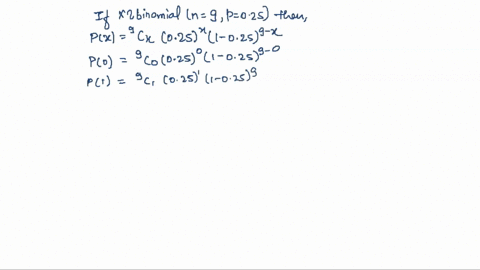 If x~binomial (n=9, p=0.25) then,
P(x) = ⁹Cₓ (0.25)ˣ (1-0.25)⁹⁻ˣ
P(0) = ⁹C₀ (0.25)⁰ (1-0.25)⁹⁻⁰
P(1) = ⁹C₁ (0.25)¹ (1-0.25)⁹